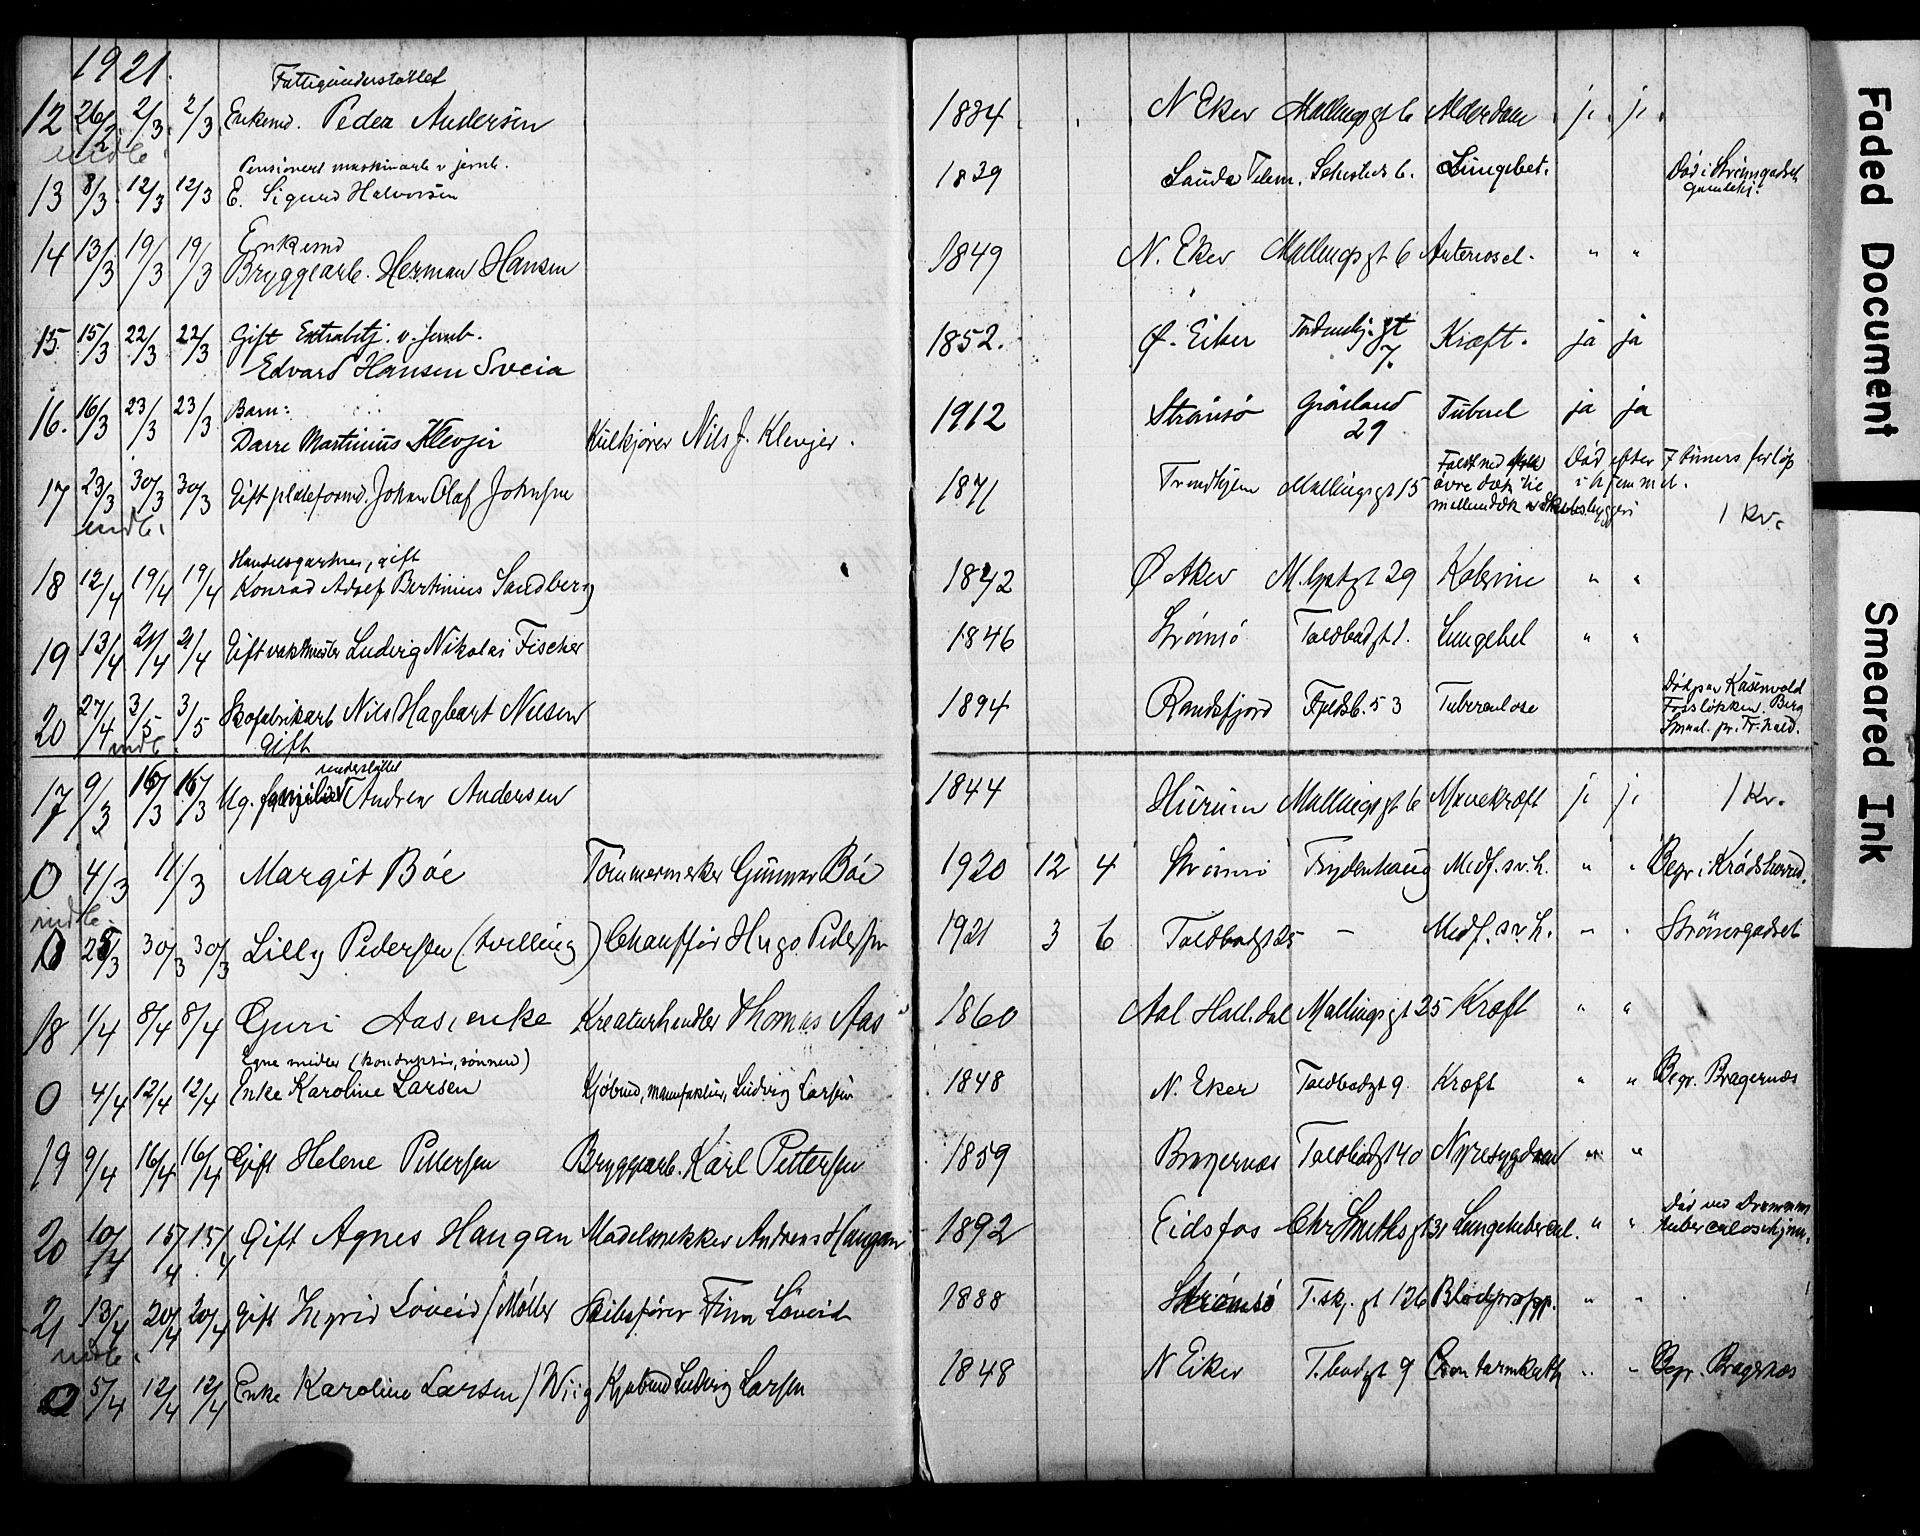 1921.
Fattigunderstøttet
12 26/2 2/3 2/3 Enkemd. Peder Andersen 1834 N Eker Mallingsgt 6 Alderdom ja ja
indb.
Pensionert maskinarb v jernb.
13 8/3 12/3 12/3 E. Sigurd Halvorsen 1839 Sauda Telem. 6. Lungebet. Død i Strømsgodset
Enkemd
14 13/3 19/3 19/3 Bryggearb. Herman Hansen 1849 N. Eker Mallingsgt 6 Arterioscl. " "
15 15/3 22/3 22/3 Gift Extrabetj. v. Jernb. 1852. Ø. Eiker Tordenskj. gt 7. Kræft. ja ja
Edvard Hansen Sveia
16. 16/3 23/3 23/3 Barn: 1912 Strømsø Grønland 29 Tuberkl ja ja
Darre Martinius Klevjer Kulkjører Nils J. Klevjer.
17 23/3 30/3 30/3 Gift plateformd. Johan Olaf Johnsen 1871 Trondhjem Mallingsgt 15 Faldt ned fra øvre dæk til mellemdæk v Skibsbyggeri Død efter 7 timers forløp i hjemmet.
indb. 1 Kr.
Handelsgartner, gift
18 12/4 19/4 19/4 Konrad Adolf Bertinius Sandberg 1842 Ø Aker 29 " "
19 13/4 21/4 21/4 Gift vaktmester Ludvig Nikolai Fischer 1846 Strømsø Toldbodgt 1. Lungebet " "
20 27/4 3/5 3/5 Skofabrikarb Nils Hagbart Nilsen 1894 Randsfjord Fjeldsb. 53 Tuberculose
indb. Gift
understøttet
17 9/3 16/3 16/3 Ug. Andrea Andersen 1844 Hurum Mallingsgt 6 Mavekræft ja ja 1 Kr.
0 4/3 11/3 Margit Bøe Tømmermerker Gunnar Bøe 1920 12 4 Strømsø Frydenhaug Medf. sv. h. " " Begr. i Krødsherred.
indb.
0 25/3 30/3 30/3 Lilly Pedersen (tvelling) Chauffør Hugo Pedersen 1921 3 6 Toldbodgt 25 – Medf. sv. h. " " Strømsgodset
18 1/4 8/4 8/4 Guri Aas, enke Kreaturhandler Thomas Aas 1860 Aal Hall.dal Mallingsgt 25 Kræft " "
Egne midler (konduktør, sønnen)
0 4/4 12/4 12/4 Enke Karoline Larsen Kjøbmd, manufaktur, Ludvig Larsen 1848 N. Eker Toldbodgt 9. Kræft " " Begr. Bragernæs
19 9/4 16/4 16/4 Gift Helene Pettersen Bryggearb. Karl Pettersen 1859 Bragernæs Toldbodgt 40 Nyresygdom " "
20 10/4 15/4 15/4 Gift Agnes Haugan Modelsnekker Andreas Haugan 1892 Eidsfos Chr Smithsgt 31 Lungetubercul. " " Død ved Drammens tuberculosehjem.
21 13/4 20/4 20/4 Gift Ingrid Løveid / Møller Skibsfører Finn Løveid 1888 Strømsø T.skj. gt 126 Blodpropp. " "
indb.
0 5/4 12/4 12/4 Enke Karoline Larsen / Wiig Kjøbmd Ludvig Larsen 1848 N Eiker T.bodgt 9 Cron tarmkatth " " Begr. Bragernæs
Faded Document
Smeared Ink